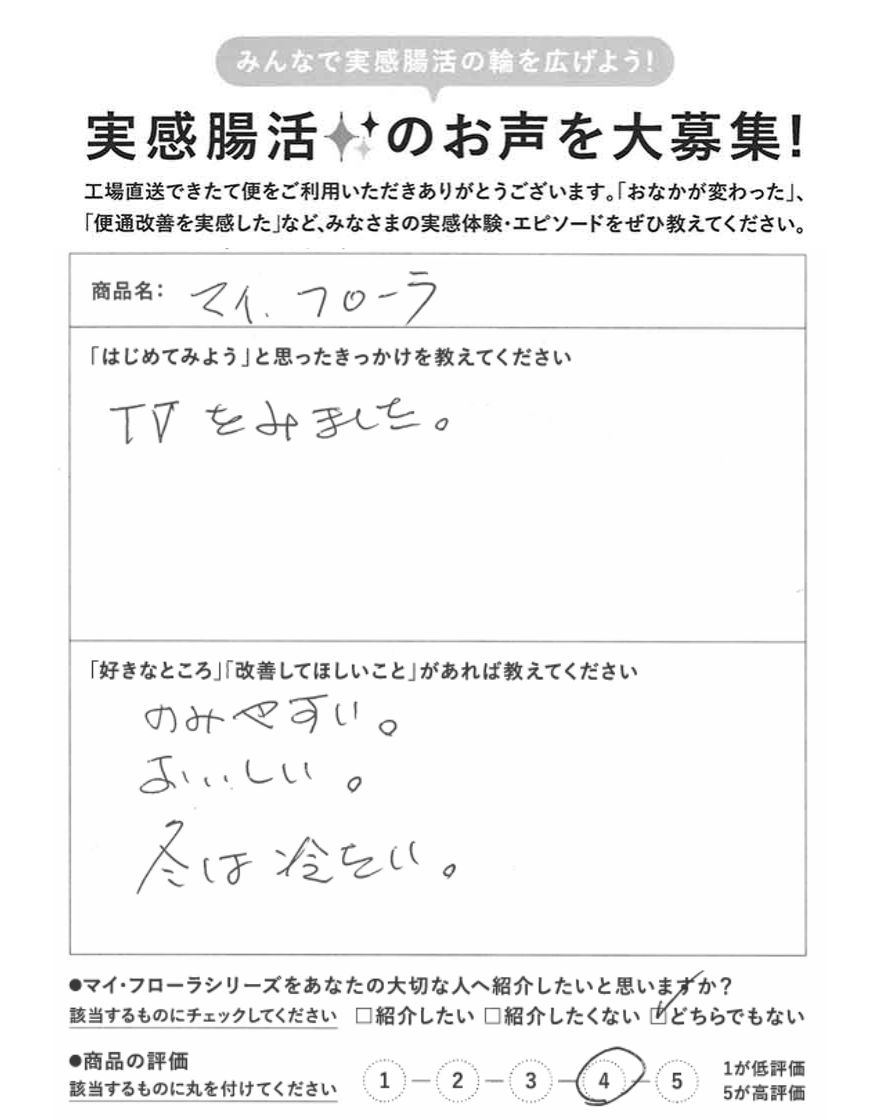 みんなで実感腸活の輪を広げよう!
実感腸活のお声を大募集!
工場直送できたて便をご利用いただきありがとうございます。「おなかが変わった」、
「便通改善を実感した」など、みなさまの実感体験・エピソードをぜひ教えてください。
商品名: マイ.フローラ
「はじめてみよう」と思ったきっかけを教えてください
TVをみました。
「好きなところ」「改善してほしいこと」があれば教えてください
のみやすい。
おいしい。
冬は冷たい。
●マイ・フローラシリーズをあなたの大切な人へ紹介したいと思いますか?
該当するものにチェックしてください □紹介したい □紹介したくない ☑どちらでもない
●商品の評価
該当するものに丸を付けてください 1 - 2 - 3 - 4 - 5
1が低評価
5が高評価